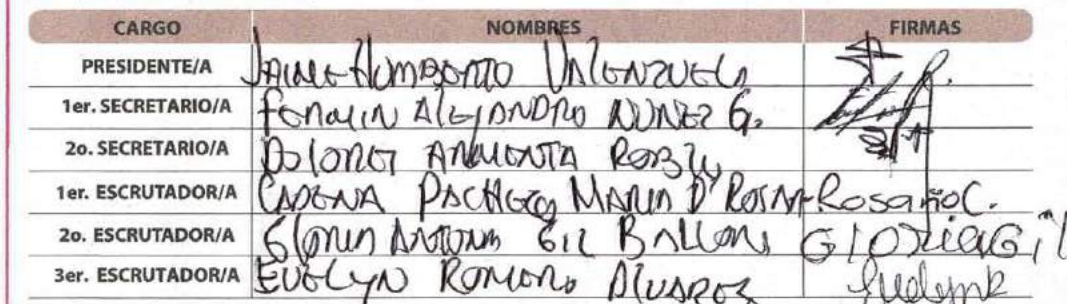 CARGO NOMBRES FIRMAS
PRESIDENTE/A JAIME HUMBERTO VALENZUELA
1er. SECRETARIO/A FERMIN ALEJANDRO NUÑEZ G.
2o. SECRETARIO/A DOLORES ARMENTA
1er. ESCRUTADOR/A CADENA PACHECO MARIA D ROSAR Rosario C.
2o. ESCRUTADOR/A GLORIA ANTONIA GIL Gloria Gil
3er. ESCRUTADOR/A EVELYN ROMERO ALVAREZ Evelyn R